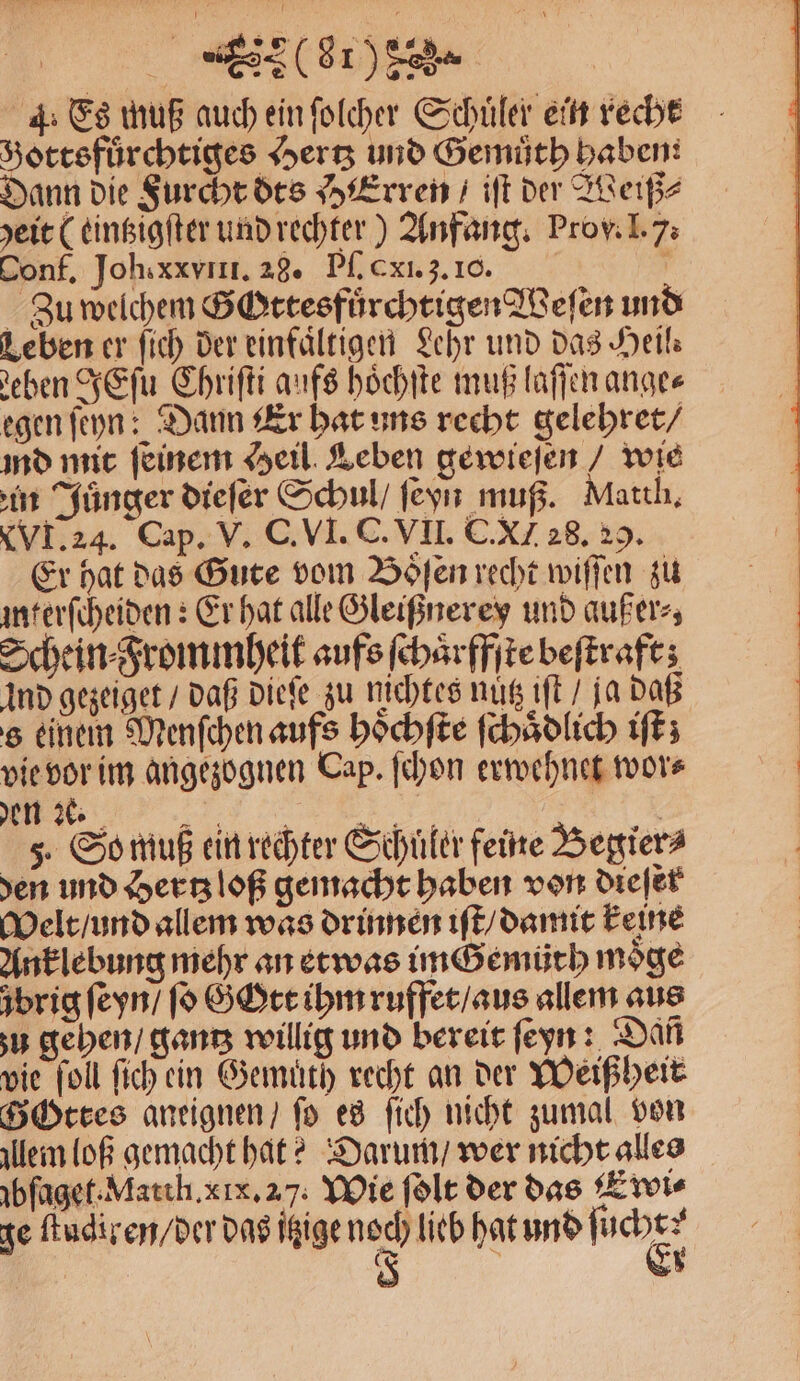 (81)
4. Es muß auch ein ſolcher Schuͤler ein recht
Gottsfuͤrchtiges Hertz und Gemuͤth haben:
Dann die Furcht des HErren / iſt der Weiß⸗
heit ( eintzigſter und rechter ) Anfang. Prov. I. 7.
Conf. Joh. xxviii. 28. Pſ. cxi. 3. 10.
Zu welchem GOttesfuͤrchtigen Weſen und
Leben er ſich der einfaͤltigen Lehr und das Heil.
Leben JEſu Chriſti aufs hoͤchſte muß laſſen ange⸗
egen ſeyn: Dann Er hat uns recht gelehret/
und mit ſeinem Heil. Leben gewieſen / wie
ein Juͤnger dieſer Schul/ ſeyn muß. Matth.
XVI. 24. Cap. V. C. VI. C. VII. C. XI 28. 29.
Er hat das Gute vom Boͤſen recht wiſſen zu
unterſcheiden: Er hat alle Gleißnerey und außer⸗,
Schein⸗Frommheit aufs ſchaͤrffſte beſtraft;
Und gezeiget / daß dieſe zu nichtes nuͤtz iſt / ja daß
s einem Menſchen aufs hoͤchſte ſchaͤdlich iſt;
wie vor im angezognen Cap. ſchon erwehnet wor⸗
den ꝛc.
5. So muß ein rechter Schuͤler ſeine Begier⸗
den und Hertz loß gemacht haben von dieſer
Welt/und allem was drinnen iſt/damit keine
Anklebung mehr an etwas im Gemuͤth moͤge
uͤbrig ſeyn/ ſo GOtt ihm ruffet/aus allem aus
zu gehen/ gantz willig und bereit ſeyn: Dañ
wie ſoll ſich ein Gemuͤth recht an der Weißheit
GOttes aneignen/ ſo es ſich nicht zumal von
allem loß gemacht hat? Darum/ wer nicht alles
abſaget. Matth. xix. 27. Wie ſolt der das Ewi⸗
ge ſtudiren/der das itzige noch lieb hat und ſucht?
F Er